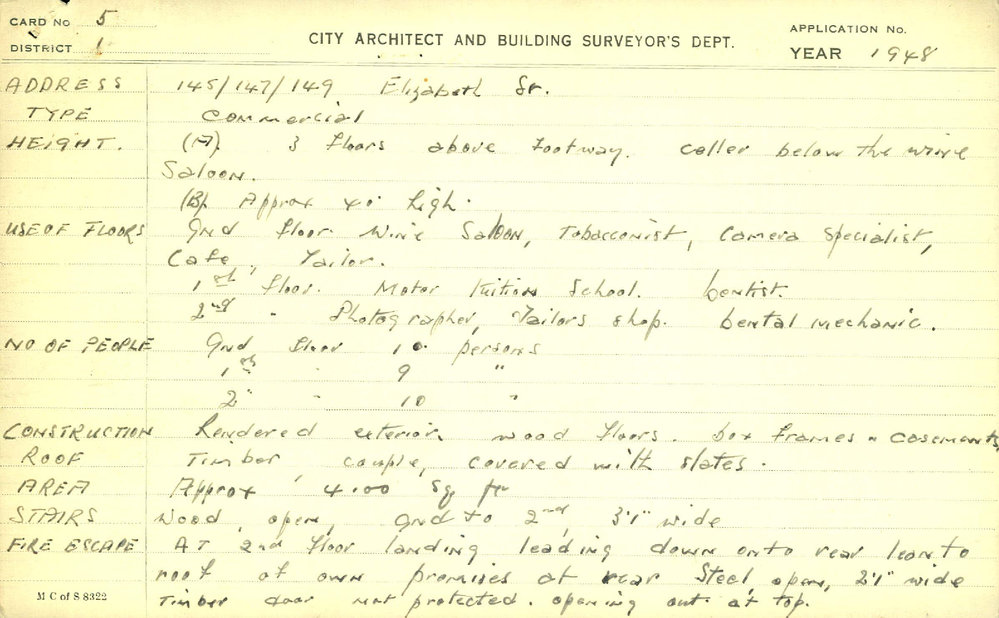 CARD No 5
DISTRICT 1
CITY ARCHITECT AND BUILDING SURVEYOR'S DEPT.
APPLICATION No.
YEAR 1948
ADDRESS 145/147/149 Elizabeth St.
TYPE Commercial
HEIGHT. (A). 3 floors above footway. Celler below the wine
Saloon.
(B). Approx 40' high.
USE OF FLOORS Gnd floor Wine Saloon, Tobacconist, Camera Specialist,
Cafe, Tailor.
1st floor. Motor Tuition School. Dentist.
2nd " Photographer, Tailors shop. Dental mechanic.
NO OF PEOPLE Gnd floor 10 persons
1st " 9 "
2" " 10 "
CONSTRUCTION Rendered exterior. wood floors. box frames & casements,
ROOF Timber, couple, covered with slates.
AREA Approx 4.00 sq ft
STAIRS Wood, open, Gnd to 2nd, 3'1" wide
FIRE ESCAPE At 2nd floor landing leading down onto rear leanto
roof of own premises at rear Steel open, 2'1" wide
Timber door not protected. opening out at top.
M C of S 8322